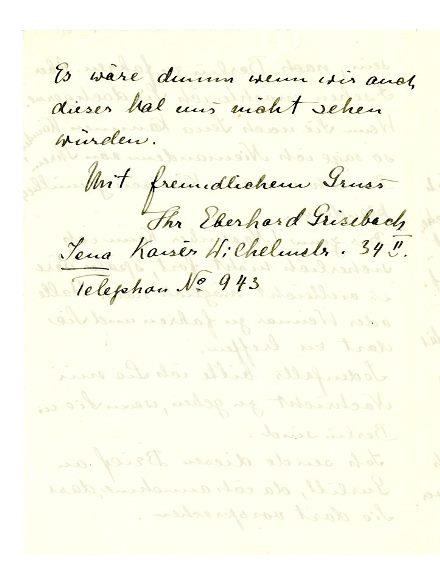 Es wäre dumm wenn wir auch
dieses Mal uns nicht sehen
würden.
Mit freundlichem Gruss
Ihr Eberhard Grisebach
Jena Kaiser Wilhelmstr. 34 II.
Telephon No 943